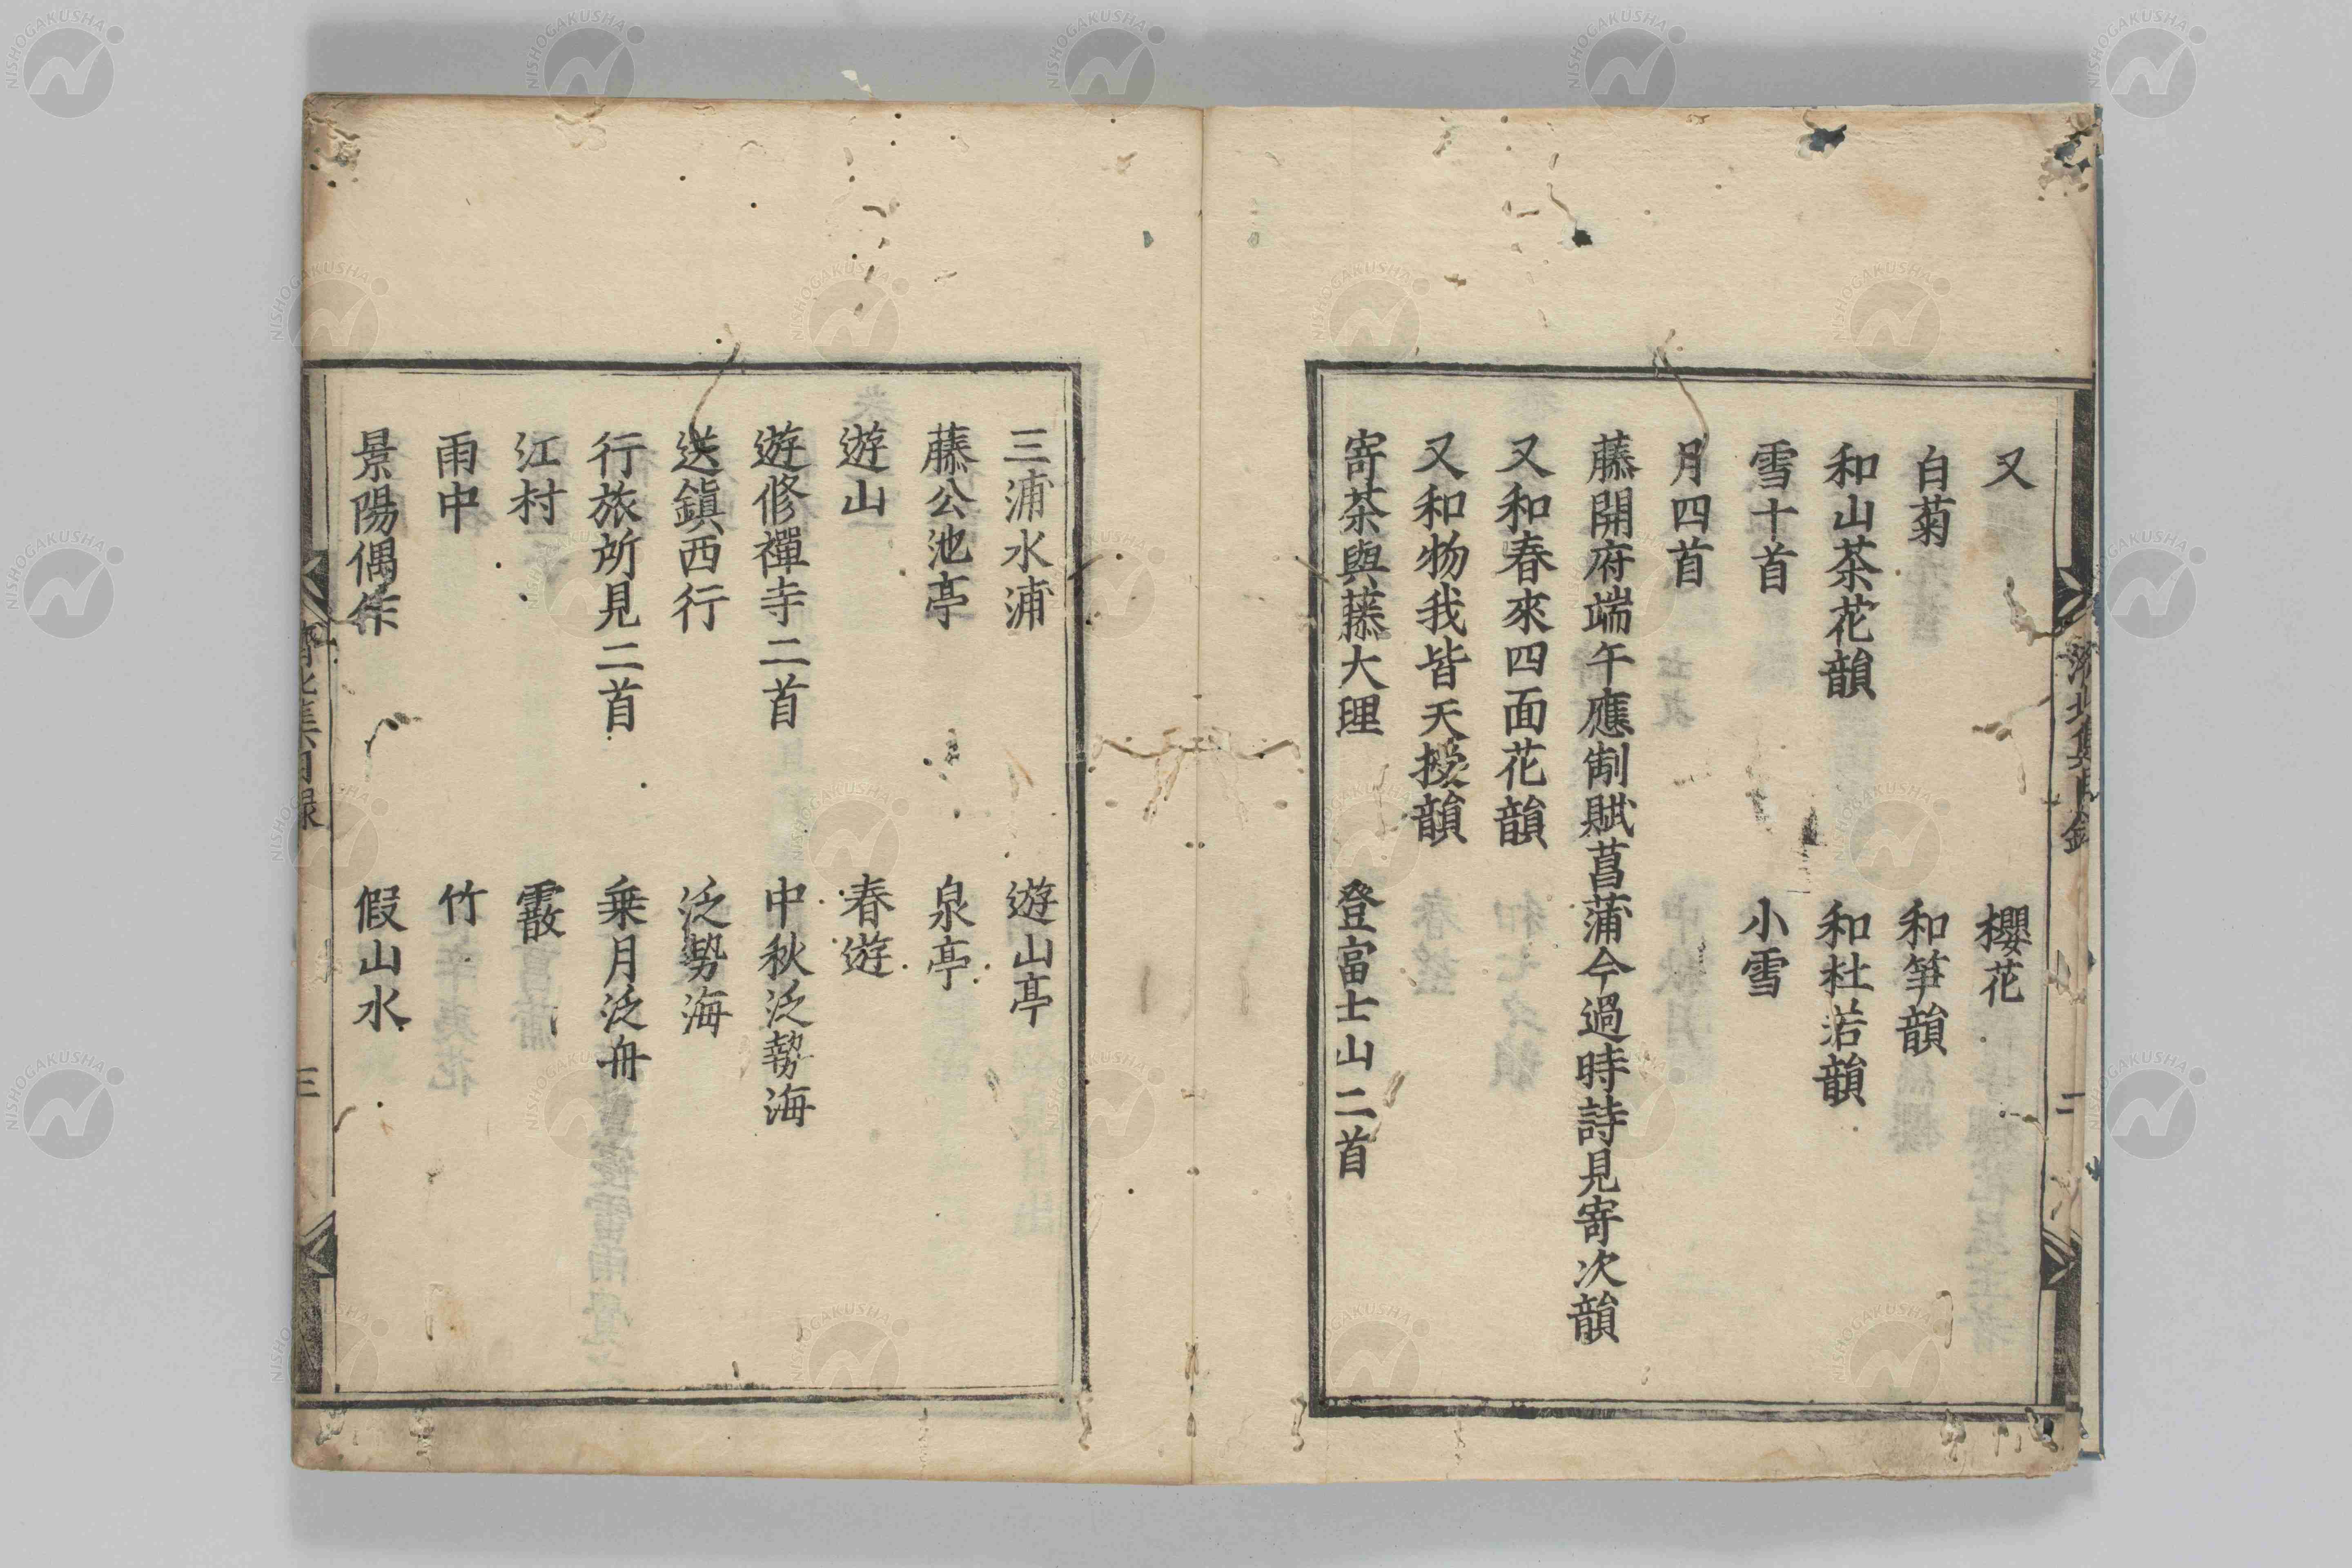 又　櫻花
白菊　和笋韻
和山茶花韻　和杜若韻
雪十首　小雪
月四首
藤開府端午應制賦菖蒲今過時詩見寄次韻
又和春來四面花韻
又和物我皆天授韻
寄茶與藤大理　登富士山二首
三浦水浦　遊山亭
藤公池亭　泉亭
遊山　春遊
遊修禪寺二首　中秋泛勢海
送鎭西行　泛勢海
行旅所見二首　乗月泛舟
江村　霰
雨中　竹
景陽偶作　假山水
濟北集目録　二
濟北集目録　三
NISHOGAKUSHA